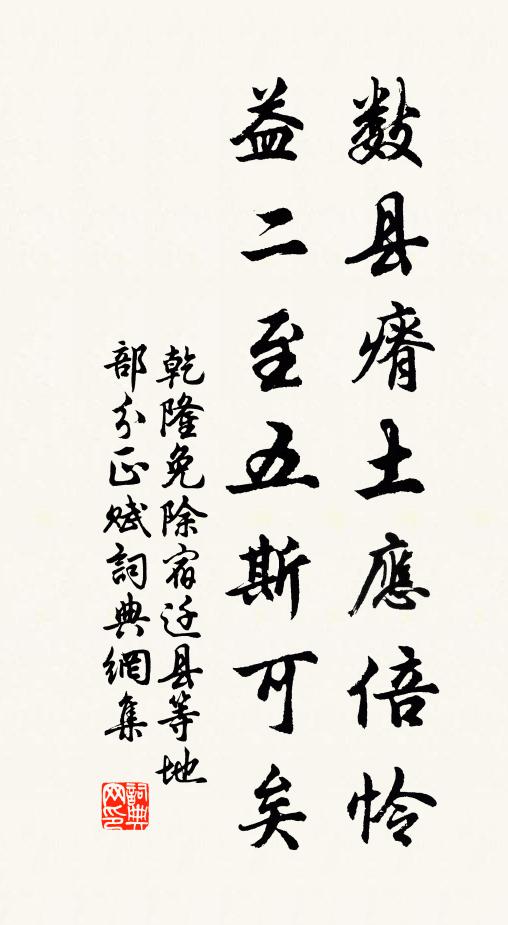 数县瘠土應倍怜
益二至五斯可矣
乾隆免除宿迁县等地
部分正赋詞典網集
詞典
网印